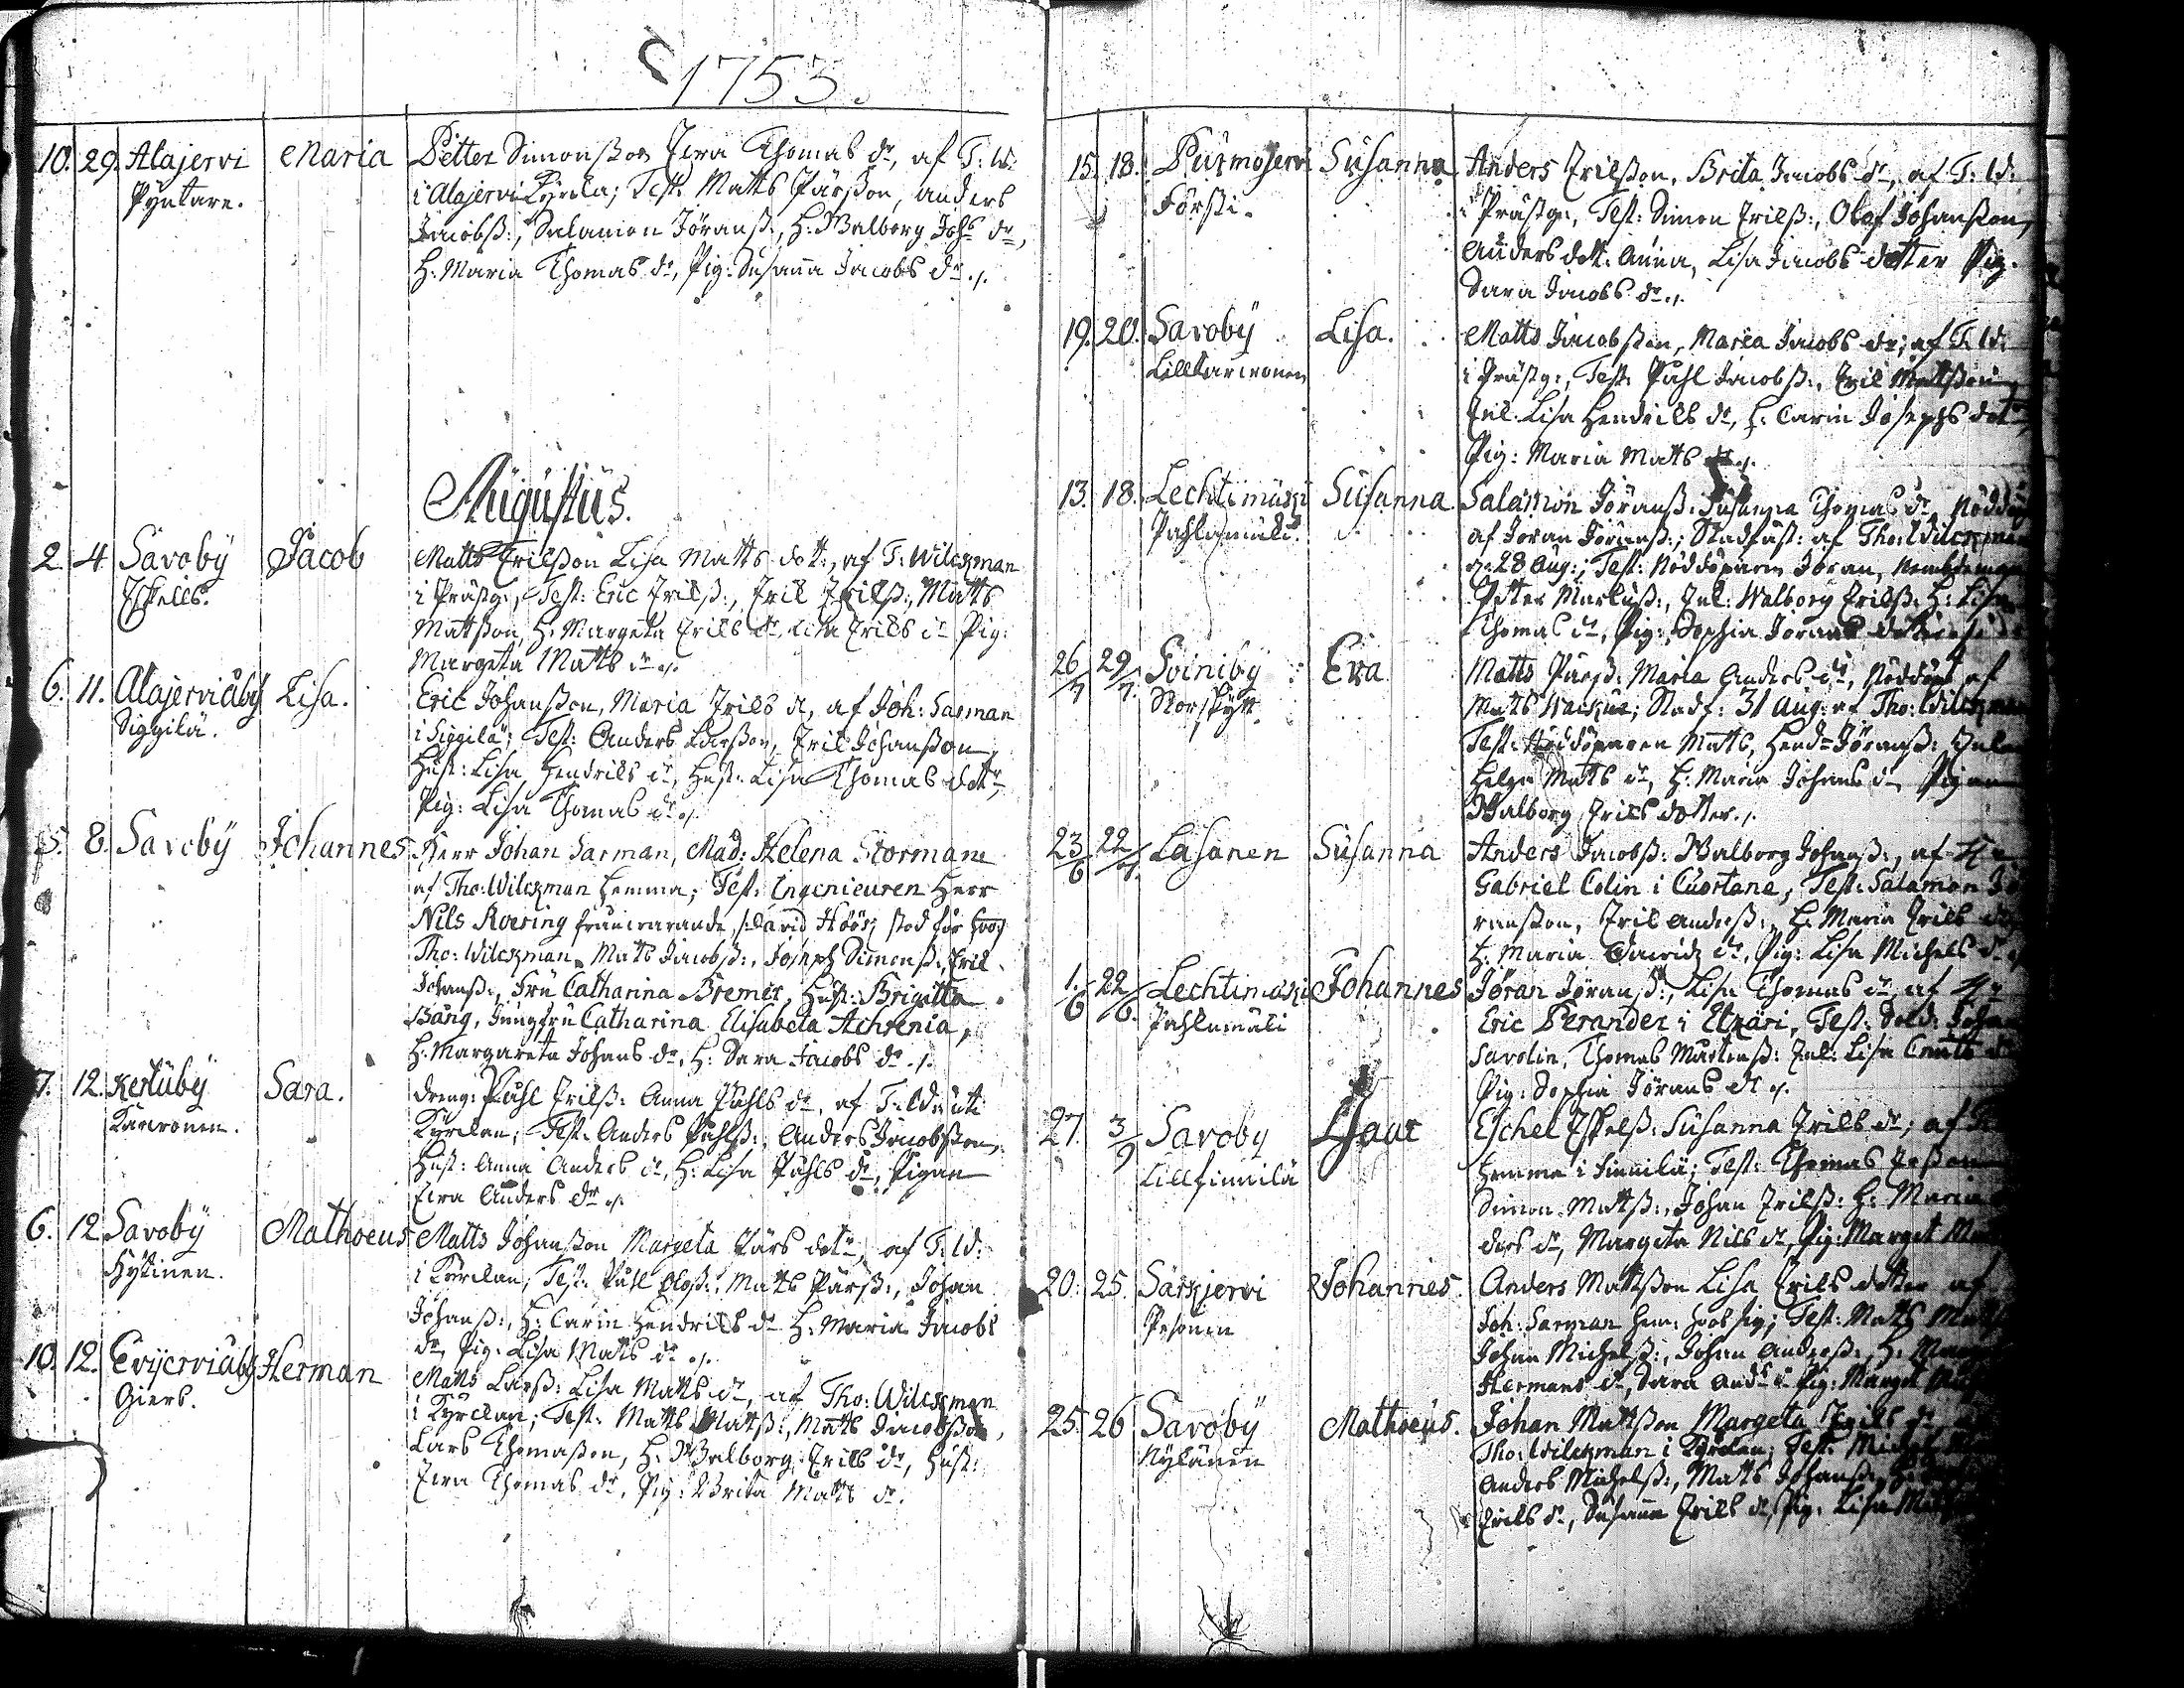 1753.
10. 29. Alajervi Maria Petter Simonsson Ewa Thomas dr, af T: W:
Pyntare. i Alajervi Kyrcka; Test: Matts Pärsson, Anders
Jacobss:, Salamon Jöranss:, H: Walborg Johs dr,
H: Maria Thomas dr, Pig: Susanna Jacobs dr ./.
Augustus.
2 4 Savoby Jacob Matts Ericsson Lisa Matts dott:, af T: Wilckman
Eskells. i Prästg:, Test: Eric Erikss:, Erik Erikss:, Matts
Matsson, H: Margeta Eriks dr, Lisa Eriks dr Pig:
Margeta Matts dr ./.
6. 11. Alajerviåby Lisa. Eric Johansson, Maria Eriks dr, af Joh: Sarman
Siggilä. i Siggilä; Test: Anders Larsson, Erik Johansson,
Hust: Lisa Hendriks dr, Hust: Lisa Thomas dotr,
Pig: Lisa Thomas dr ./.
5. 8. Savoby Johannes. Herr Johan Sarman, Mad: Helena Stormane
af Tho: Wilckman hemma; Test: Ingenieuren Herr
Nils Roering frånwarande, David Höös stod för
Tho: Wilckman, Matts Jacobss:, Joseph Simonss:, Erik
Johanss:, Fru Catharina Bremer, Hust: Brigitta
Bång, Jungfru Catharina Elisabeta Achrenia,
H: Margareta Johans dr, H: Sara Jacobs dr ./.
7. 12. Kertuby Sara. Dreng: Påhl Erikss: Anna Påhls dr, af T: W: uti
Karwonen. Kyrckan; Test: Anders Påhlss:, Anders Jacobsson,
Hust: Anna Anders dr, H: Lisa Påhls dr, Pigan
Ewa Anders dr ./.
6. 12 Savoby Mathoeus Matts Johansson Margeta Pärs dotr, af T: W:
Hytinen. i Kyrckan, Test: Påhl Olofss:, Matts Pärss:, Johan
Johanss:, H: Carin Hendriks dr H: Maria Jacobs
dr, Pig: Lisa Matts dr ./.
10. 12. Evijerviåby Herman Matts Larss: Lisa Matts dr, af Tho: Wilckman
Giers. i Kyrckan; Test: Matts Matss:, Matts Jacobsson,
Lars Thomasson, H: Walborg Eriks dr, Hust:
Ewa Thomas dr, Pig: Brita Matts dr.
15. 18. Purmojervi Susanna Anders Eriksson, Brita Jacobs dr, af T: W:
Försti. i Prästg:, Test: Simon Erikss:, Olof Johansson,
Anders dott: Anna, Lisa Jacobs dotter Pig:
Sara Jacobs dr ./.
19. 20. Savoby Lisa. Matts Jacobsson, Maria Jacobs dr, af T: W:
Lillkarwonen i Prästg:, Test: Påhl Jacobss:, Erik Mattsson,
Enk: Lisa Hendriks dr, H: Carin Josephs dotr,
Pig: Maria Matts dr ./.
13. 18. Lechtimäki Susanna. Salamon Jöranss: Susanna Thomas dr, Nöddöpt
Pahlamäki. af Jöran Jöranss:, Stadfäst: af Tho: Wilckman
28 Aug:, Test: Nöddöparen Jöran,
Petter Markuss:, Enk: Walborg Erikss: H: Lisa
Thomas dr, Pig: Sophia Jörans dotter
26/7 29/7. Soiniby Eva Matts Pärss: Maria Anders dr, Nöddöpt af
Matts; Stadf: 31 Aug: af Tho: Wilckman
Test: Nöddöparen Matts, Hend: Jöranss:,
Helga Matts dr, H: Maria Johans dr, Pigan
Walborg Eriks dotter ./.
23/6 22/7. Lasanen Susanna Anders Jacobss: Walborg Johanss:, af Hr
Gabriel Colin i Cuortane, Test: Salamon Jö
ransson, Erik Anderss:, H: Maria Eriks dr
H: Maria Dawidz dr, Pig: Lisa Michels dr
1/6 22/6. Lechtimäki Johannes Jöran Jöranss:, Lisa Thomas dr, af Hr
Pahlamäki Eric Perander i Etzäri, Test: Sold: Johan
Savolin, Thomas Mårtenss: Enk: Lisa
Pig: Sophia Jörans dr ./.
27. 3/9 Savoby Isaac Eschel Eskelss: Susanna Eriks dr; af
Lillfinnilä hemma i Finnilä; Test: Thomas
Simon Matss:, Johan Erikss: H: Maria
ders dr, Margeta Nils dr, Pig: Marget
20. 25. Särkjervi Johannes. Anders Mattsson Lisa Eriks dotter af
Pesonen Joh: Sarman hem: Test: Matts
Johan Michelss:, Johan Anderss:, H:
Hermans dr, Sara And: dr Pig: Marget
25. 26 Savoby Mathoeus. Johan Mattsson Margeta Eriks dr
Nylänen Tho: Wilckman i Kyrckan; Test: Michel
Anders Michelss:, Matts Johanss:
Eriks dr, Susanna Eriks dr, Pig: Lisa